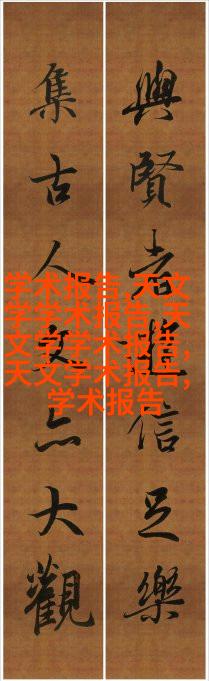 與賢者遊信足樂
集古人文亦大觀
学术报告,天文
学学术报告,天
文学学术报告,
天文学术报告,
学术报告